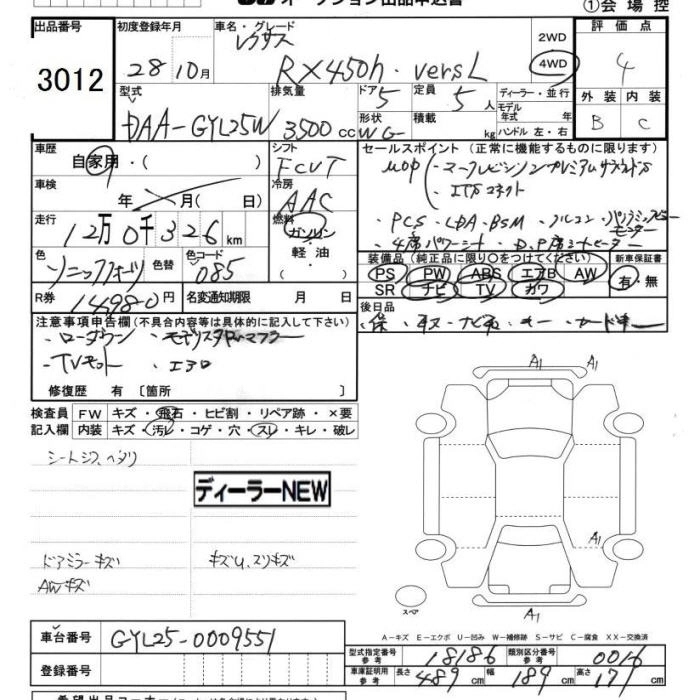 オークション出品申込書 ①会場控
出品番号 3012
初度登録年月 28 10月
車名・グレード レクサス RX450h・versL
2WD 4WD
評価点 4
外装 B 内装 C
型式 DAA-GYL25W
排気量 3500cc
ドア 5 定員 5人
形状 WG 積載 kg
ディーラー・並行
モデル年式 年式
ハンドル 左・右
車歴 自家用・( )
シフト FCVT
車検 年 月( 日)
冷房 AAC
走行 12万0千326km
燃料 ガソリン・軽油・( )
色 ソニッククォーツ 色替 色コード 085
R券 14980円 名変通知期限 月 日
セールスポイント (正常に機能するものに限ります)
MOP
・PCS・LDA・BSM
装備品 (純正品に限り○をつけてください) 新車保証書
PS PW ABS エアB AW 有・無
SR ナビ TV カワ
後日品
・保・取・ナビ取・キー・カードキー
注意事項申告欄 (不具合内容等は具体的に記入して下さい)
・ローダウン ・モデリスタ マフラー
・TVキット ・エアロ
修復歴 有 [箇所 ]
検査員 FW キズ・飛石・ヒビ割・リペア跡・×要
記入欄 内装 キズ・汚レ・コゲ・穴・スレ・キレ・破レ
シートシワ、ヘタリ
ディーラーNEW
ドアミラーキズ キズU、スリキズ
AWキズ
A1 A1
A1
スペア A1
A-キズ E-エクボ U-凹み W-補修跡 S-サビ C-腐食 XX-交換済
車台番号 GYL25-0009551
型式指定番号 参考 18186 類別区分番号 参考 0016
登録番号
車庫証明用 参考 長さ 489cm 幅 189cm 高さ 171cm